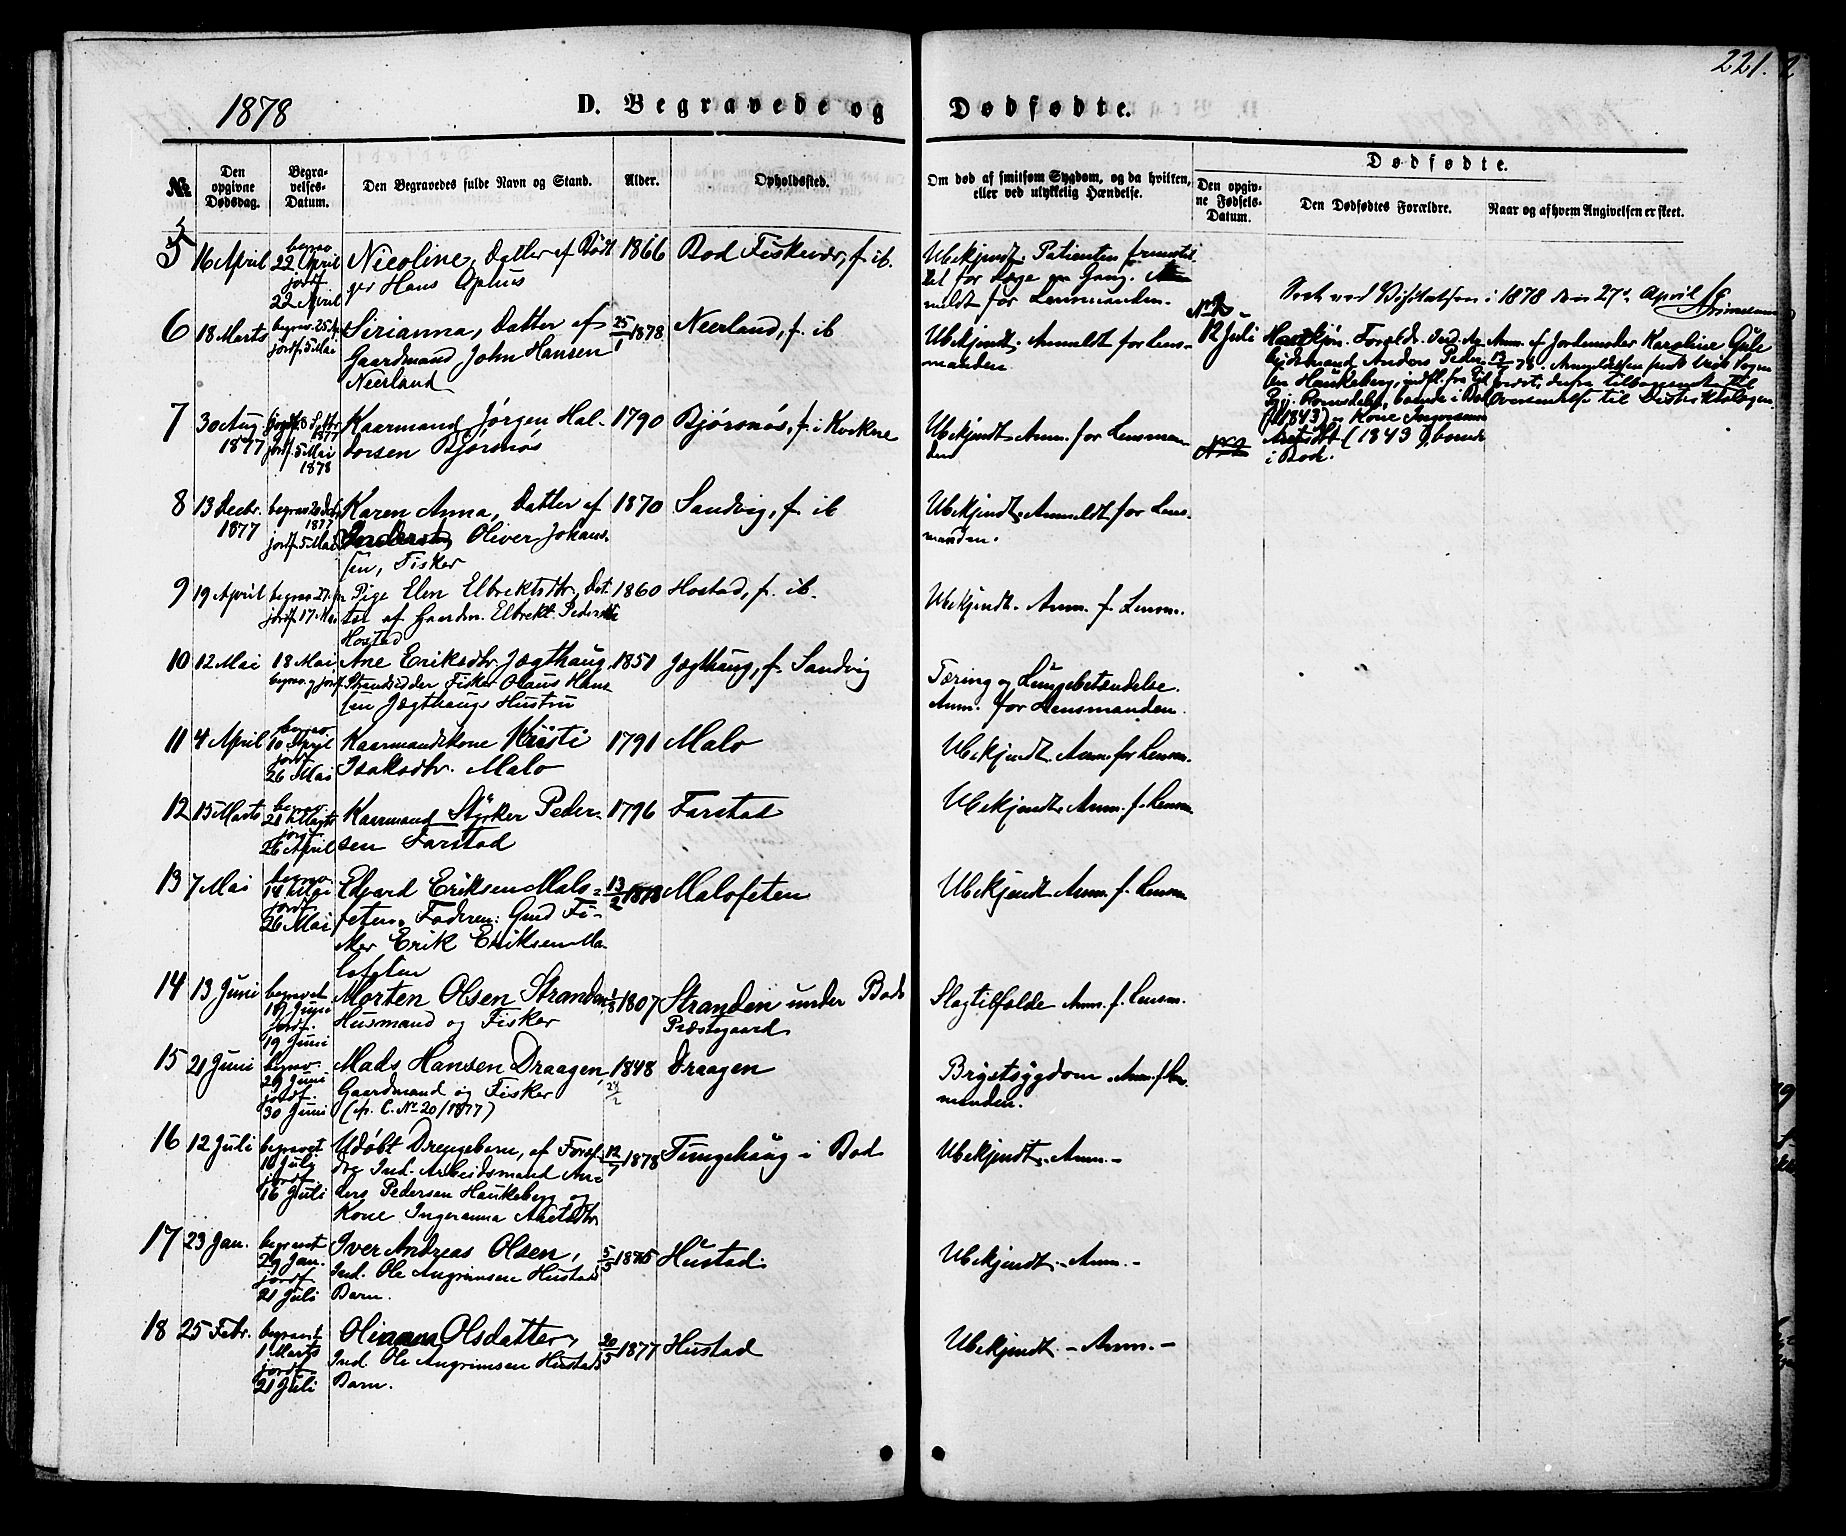 221.
1878
D. Begravede og Dødfødte.
№
Den opgivne Dødsdag.
Begravelses-Datum.
Den Begravedes fulde Navn og Stand.
Alder.
Opholdssted.
Om død af smitsom Sygdom, og da hvilken, eller ved ulykkelig Hændelse.
Dødfødte.
Den opgivne Fødsels-Datum.
Den Dødfødtes Forældre.
Naar og af hvem Angivelsen er skeet.
5 16 April begrav. 22 April jordf. 22 April
Nicoline, Datter af
Hans Ophus
1866 Bod Fiskevær, f. ib.
Ubekjendt. Patienten
for Læge en Gang.
meldt for Lensmanden.
6 18 Marts begrav. 25 jordf. 5 Mai
Sirianna, Datter af
Gaardmand John Hansen
Neerland
25/1 1878 Neerland, f. ib
Ubekjendt. Anmeldt for Lens-
manden
7 30 Aug 1877 1877 jordf. 5 Mai 1878
Kaarmand Jørgen Hal-
dorsen Bjørsnøs
1790 Bjørsnøs, f. i Kvekne
Ubekjendt. Anm. for Lensman
den
8 13 Decbr. 1877 begrav. 1877 jordf. 5 Mai
Karen Anna, Datter af
Oliver Johans-
sen, Fisker
1870 Sandvig, f. ib
Ubekjendt. Anmeldt for Lens-
manden.
9 19 April begrav. 27. jordf. 17 Mai
Pige Elen Elbrektsdtr, Dat-
ter af Gaardm. Elbrekt Pedersen
Hostad
1860 Hostad, f. ib.
Ubekjendt. Anm. f. Lensm.
10 12 Mai 18 Mai begrav. og jordf.
Ane Eriksdtr. Jægthaug
Strandsidder Fisker Olaus Han-
sen Jægthaugs Hustru
1851 Jægthaug, f. Sandvig
Tæring og Lungebetændelse.
Anm. for Lensmanden.
11 4 April begrav. 10 April jordf. 26 Mai
Kaarmandskone Kristi
Isaksdtr. Malo
1791 Malo
Ubekjendt. Anm. for Lensm.
12 15 Marts begrav. 21 Marts jordf. 26 April
Kaarmand Styrker Peder-
sen Farstad
1796 Farstad
Ubekjendt. Anm. f. Lensm
13 7 Mai begrav. 14 Mai jordf. 26 Mai
Edvard Eriksen Malo-
feten. Faderen: Gmd Fi-
sker Erik Eriksen Ma-
lofeten
13/2 1878 Malofeten
Ubekjendt. Anm. f. Lensm
14 13 Juni begravet 19 Juni jordf. 19 Juni
Morten Olsen Stranden
Husmand og Fisker
1/8 1807 Stranden under Bods
Præstegaard
Slagtilfælde Anm. f. Lensm.
15 21 Juni begrav. 29 Juni jordf. 30 Juni
Mads Hansen Draagen,
Gaardmand og Fisker
(cfr. C. No 20/1877)
1848 24/2 Draagen
Brystsygdom. Anm. f. Lens
manden.
16 12 Juli begravet 16 July jordf. 16 Juli
Udøbt Drengebarn, af Foræl-
dre Ind. Arbeidsmand An-
ders Pedersen Haukeberg og
Kone Ingeranna Axelsdtr
12/7 1878 Tungehaug i Bod
Ubekjendt. Anm. –
17 23 Jan. begravet 29 Jan. jordf. 21 Juli
Iver Andreas Olsen,
Ind. Ole Angrimsen Hustads
Barn.
5/5 1875 Hustad
Ubekjendt. – Anm. –
18 25 Febr. begravet 1 Marts jordf. 21 Juli
Olinanna Olsdatter,
Ind. Ole Angrimsen Hustads
Barn.
20/5 1877 Hustad
Ubekjendt. – Anm. –
Seet ved Visitatsen i 1878 den 27de April
12 Juli
Forældr. Ind. Ar-
beidsmand Anders Peder-
sen Haukeberg, indfl. fra
Romsdalen, boende i Bod
(f. 1843) og Kone Ingeranna
(1843), boende
i Bod.
Anm. af Jordemoder Karoline Gule
12/7 78. Anmeldelsen
tilbagesendt til
Oversendelse til Distriktslægen.